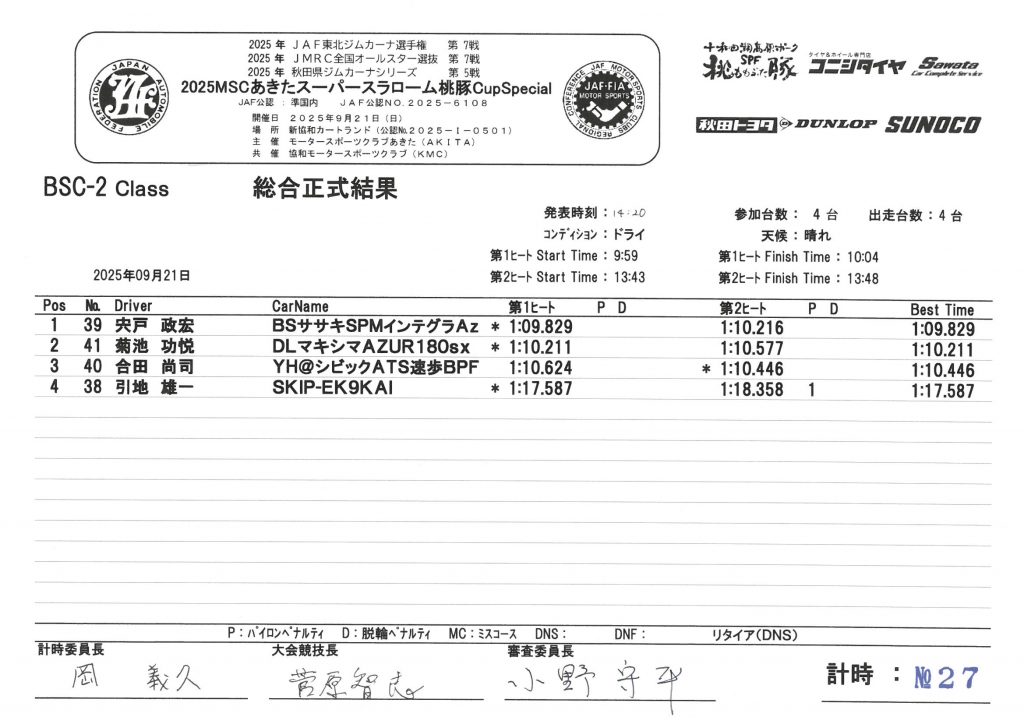 2025 年 JAF東北ジムカーナ選手権 第 7戦
2025 年 JMRC全国オールスター選抜 第 7戦
2025 年 秋田県ジムカーナシリーズ 第 5戦
2025MSCあきたスーパースラローム桃豚CupSpecial
JAF公認 : 準国内 JAF公認NO.2025-6108
開催日 2025年9月21日(日)
場 所 新協和カートランド(公認№2025-I-0501)
主 催 モータースポーツクラブあきた(AKITA)
共 催 協和モータースポーツクラブ(KMC)
JAPAN AUTOMOBILE FEDERATION
JAF
JAF MOTOR SPORTS CLUBS REGIONAL CONFERENCE
JAF-FIA
MOTOR SPORTS
十和田湖高原ポーク
SPF
桃 ももぶた 豚
タイヤ&ホイール専門店
コニシタイヤ
Sawata
Car Complete Service
秋田トヨタ DUNLOP SUNOCO
BSC-2 Class 総合正式結果
発表時刻 : 14:20 参加台数 : 4 台 出走台数 : 4 台
コンディション : ドライ 天候 : 晴れ
第1ヒート Start Time : 9:59 第1ヒート Finish Time : 10:04
2025年09月21日 第2ヒート Start Time : 13:43 第2ヒート Finish Time : 13:48
Pos No. Driver CarName 第1ヒート P D 第2ヒート P D Best Time
1 39 宍戸 政宏 BSササキSPMインテグラAz * 1:09.829 1:10.216 1:09.829
2 41 菊池 功悦 DLマキシマAZUR180sx * 1:10.211 1:10.577 1:10.211
3 40 合田 尚司 YH@シビックATS速歩BPF 1:10.624 * 1:10.446 1:10.446
4 38 引地 雄一 SKIP-EK9KAI * 1:17.587 1:18.358 1 1:17.587
P : パイロンペナルティ D : 脱輪ペナルティ MC : ミスコース DNS : DNF : リタイア(DNS)
計時委員長 大会競技長 審査委員長
岡 義久 菅原智良 小野 守平
計時 : №27